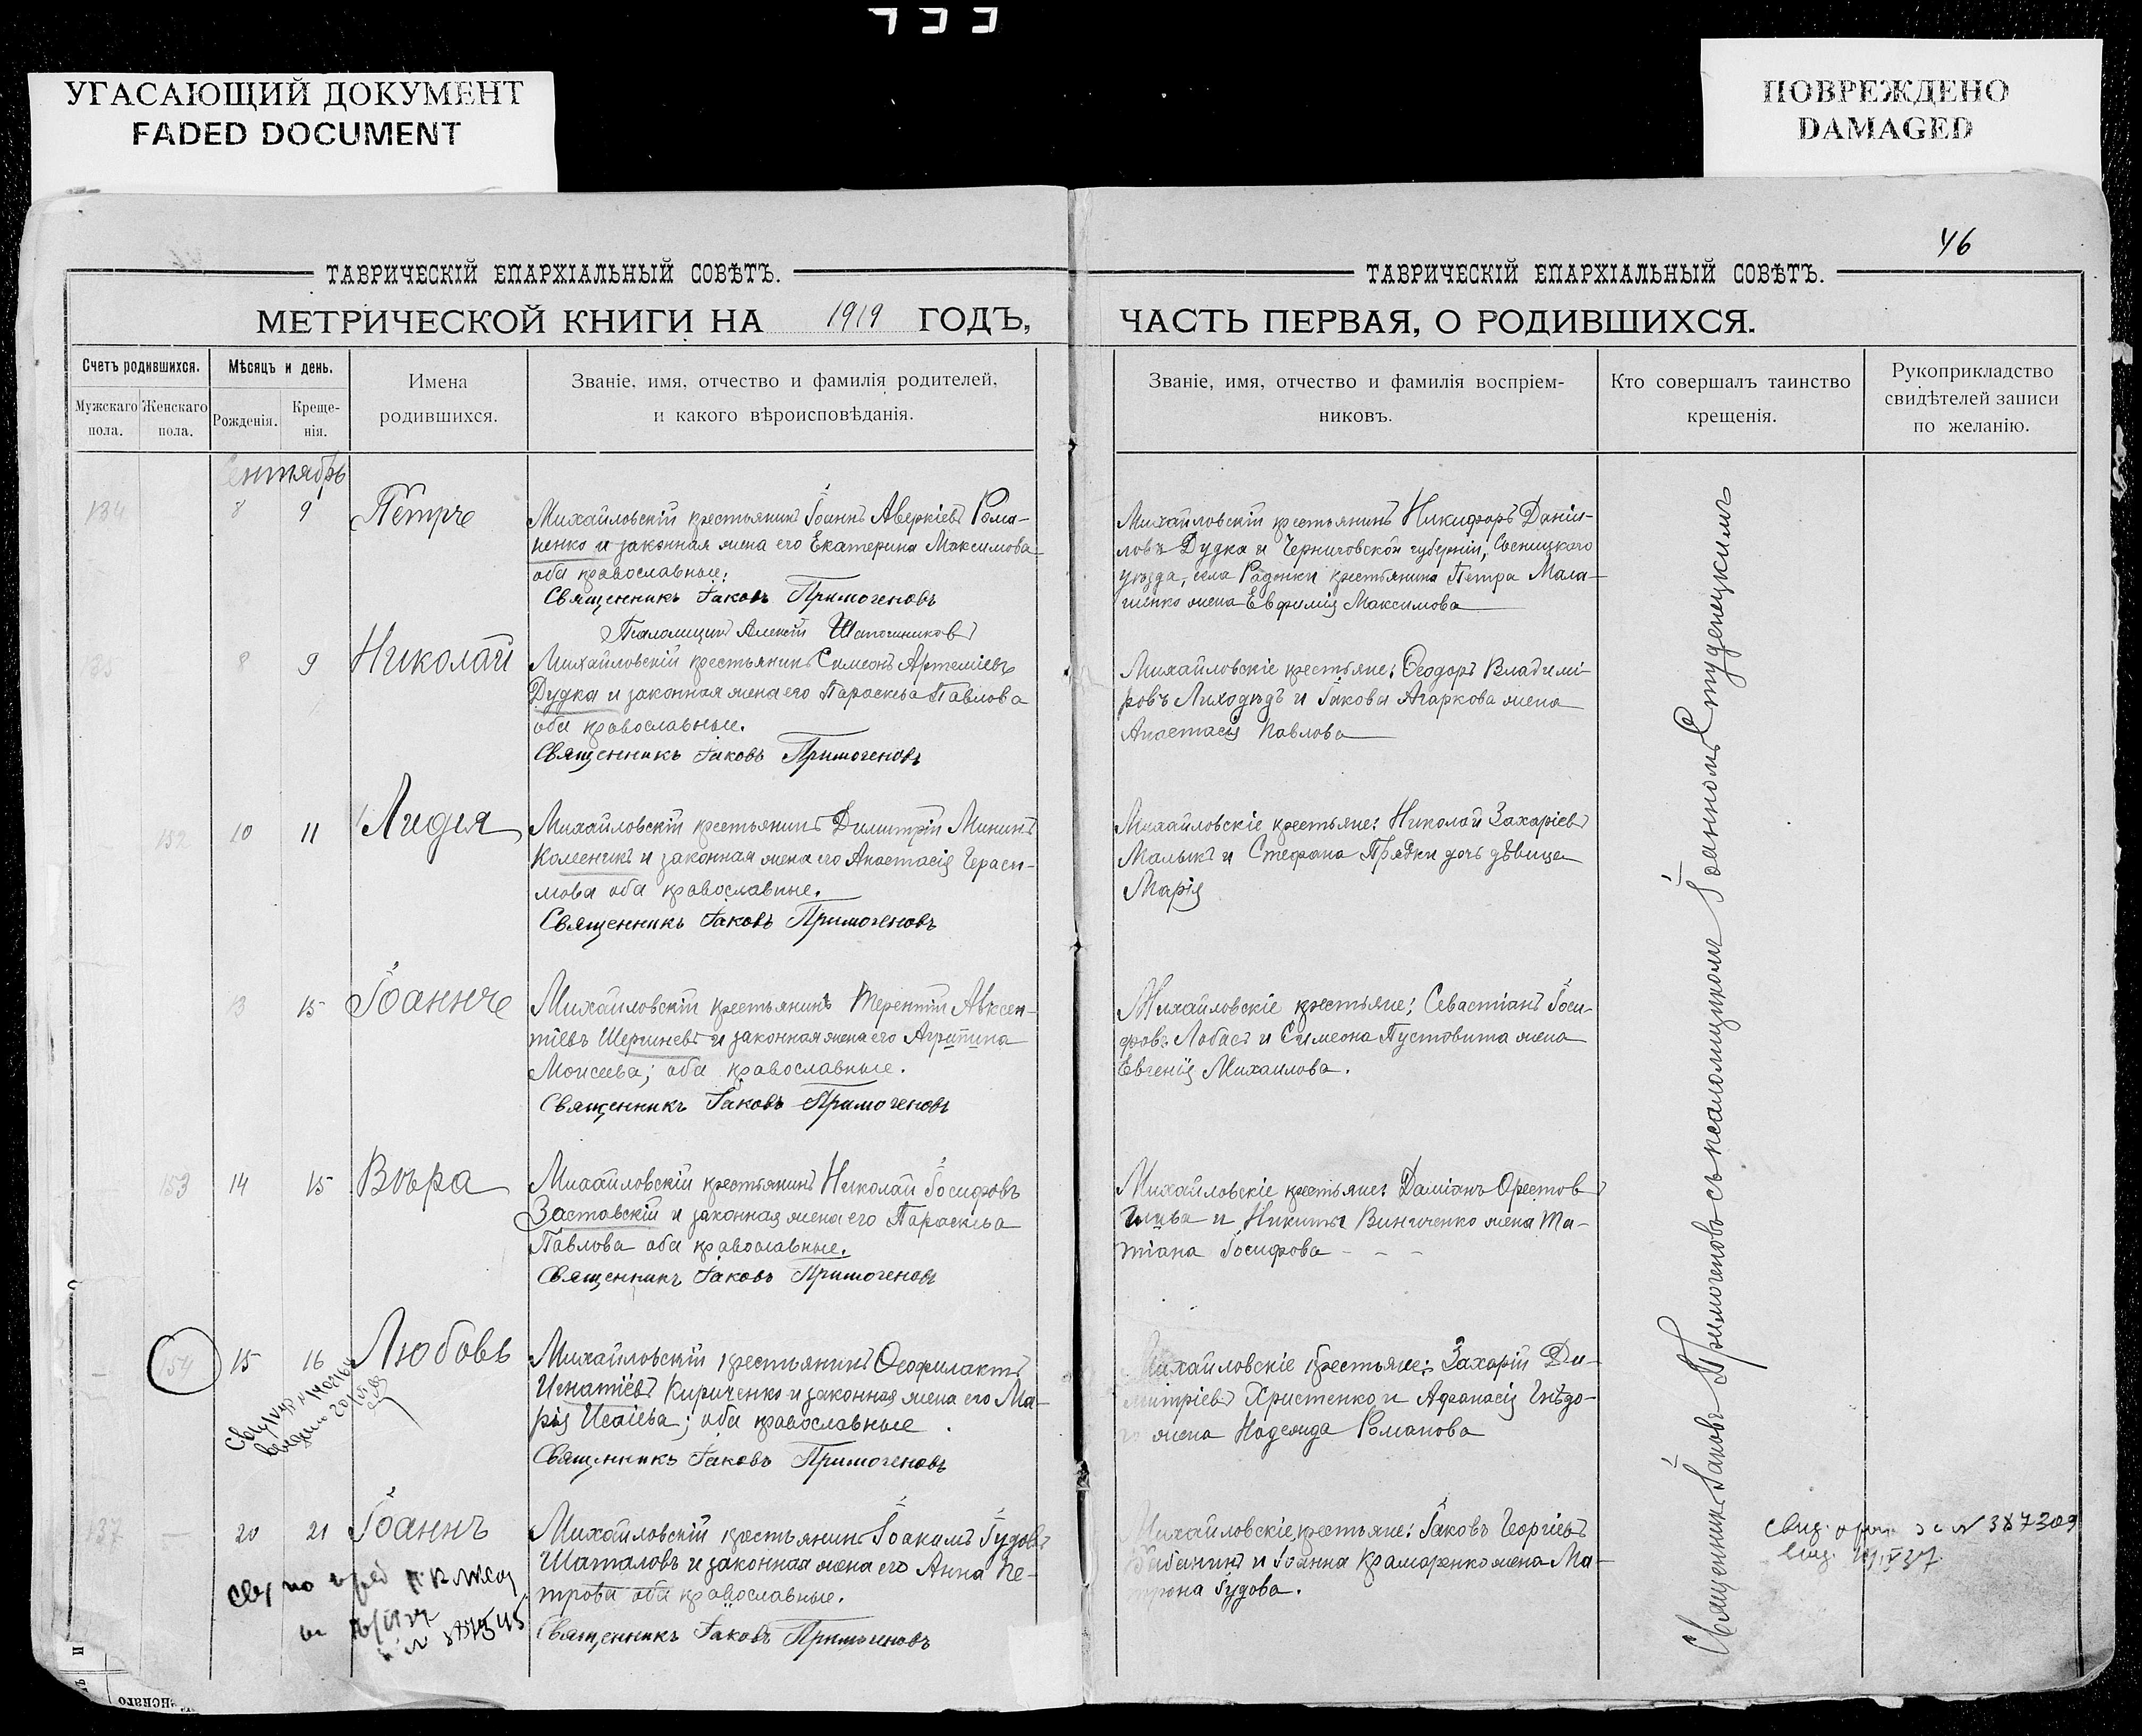 УГАСАЮЩИЙ ДОКУМЕНТ
FADED DOCUMENT
ПОВРЕЖДЕНО
DAMAGED
46
ТАВРИЧЕСКІЙ ЕПАРХІАЛЬНЫЙ СОВѢТЪ.
МЕТРИЧЕСКОЙ КНИГИ НА 1919 ГОДЪ,
Счетъ родившихся.
Мужскаго пола.
Женскаго пола.
Мѣсяцъ и день.
Рожденія.
Креще-
нія.
Имена
родившихся.
Званіе, имя, отчество и фамилія родителей,
и какого вѣроисповѣданія.
ТАВРИЧЕСКІЙ ЕПАРХІАЛЬНЫЙ СОВѢТЪ.
ЧАСТЬ ПЕРВАЯ, О РОДИВШИХСЯ.
Званіе, имя, отчество и фамилія воспріем-
никовъ.
Кто совершалъ таинство
крещенія.
Рукоприкладство
свидѣтелей записи
по желанію.
Сентябрь
134 8 9 Петръ
Михайловскій крестьянинъ Іоаннъ Аверкіевъ Рома-
ненко и законная жена его Екатерина Максимова
оба православные.
Священникъ Іаковъ Примогеновъ
Псаломщикъ Алексій Шапошниковъ
Михайловскій крестьянинъ Никифоръ Даніи-
ловъ Дудка и Черниговской губерніи, Сосницкаго
уѣзда, села Радонки крестьянина Петра Мала-
шенко жена Евфимія Максимова
8 9 Николай
Михайловскій крестьянинъ Симеонъ Артеміевъ
Дудка и законная жена его Параскева Павлова
оба православные.
Священникъ Іаковъ Примогеновъ
Михайловскіе крестьяне: Ѳеодоръ Владимі-
ровъ Лиходѣдъ и Іакова Агаркова жена
Анастасія Павлова
152 10 11 Лидія
Михайловскій крестьянинъ Димитрій Мининъ
Каменикъ и законная жена его Анастасія Гераси-
мова оба православные.
Священникъ Іаковъ Примогеновъ
Михайловскіе крестьяне: Николай Захаріевъ
Малыкъ и Стефана Прядки дочь дѣвица
Марія
13 15 Іоаннъ
Михайловскій крестьянинъ Терентій Авксен-
тіевъ Шершневъ и законная жена его Агрипина
Моисеева; оба православные.
Священникъ Іаковъ Примогеновъ
Михайловскіе крестьяне: Севастіанъ Іоси-
фовъ Лобасъ и Симеона Пустовита жена
Евгенія Михаилова.
153 14 15 Вѣра
Михайловскій крестьянинъ Николай Іосифовъ
Заставскій и законная жена его Параскева
Павлова оба православные.
Священникъ Іаковъ Примогеновъ
Михайловскіе крестьяне: Даміанъ Орестовъ
и Никиты Винниченко жена Та-
тіана Іосифова - - -
154 15 16 Любовь
Михайловскій крестьянинъ Ѳеофилактъ
Игнатіевъ Кириченко и законная жена его Ма-
рія Исаіева; оба православные.
Священникъ Іаковъ Примогеновъ
Михайловскіе крестьяне: Захарій Ди-
митріевъ Христенко и Афанасія Гнѣдо-
го жена Надежда Романова
137 — 20 21 Іоаннъ
Михайловскій крестьянинъ Іоакимъ Іудовъ
Шаталовъ и законная жена его Анна Пе-
трова оба православные.
Священникъ Іаковъ Примогеновъ
Михайловскіе крестьяне: Іаковъ Георгіевъ
и Іоанна Крамаренко жена Ма-
трона Іудова.
Священникъ Іаковъ Примогеновъ съ псаломщикомъ Іоанномъ Студенецкимъ
№ 387309